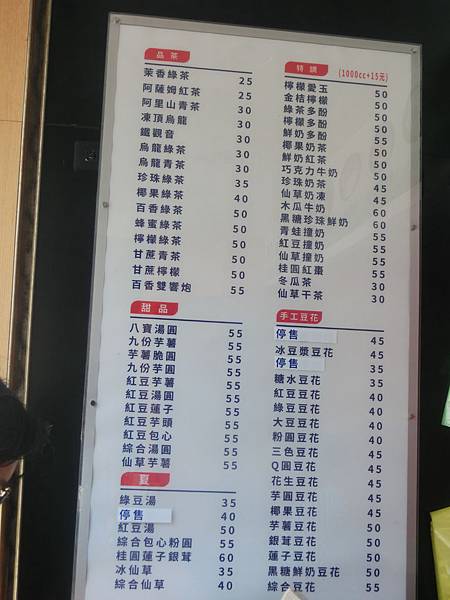 品茶
茉香綠茶 25
阿薩姆紅茶 25
阿里山青茶 30
凍頂烏龍 30
鐵觀音 30
烏龍綠茶 30
烏龍青茶 30
珍珠綠茶 35
椰果綠茶 40
百香綠茶 50
蜂蜜綠茶 50
檸檬綠茶 50
甘蔗青茶 50
甘蔗檸檬 50
百香雙響炮 55
甜品
八寶湯圓 55
九份芋薯 55
芋薯脆圓 55
九份芋圓 55
紅豆芋薯 55
紅豆湯圓 55
紅豆蓮子 55
紅豆芋頭 55
紅豆包心 55
綜合湯圓 55
仙草芋薯 55
夏
綠豆湯 35
停售 40
紅豆湯 50
綜合包心粉圓 55
桂圓蓮子銀茸 60
冰仙草 35
綜合仙草 40
特調 (1000cc+15元)
檸檬愛玉 50
金桔檸檬 50
綠茶多酚 50
檸檬多酚 50
鮮奶多酚 55
椰果奶茶 50
鮮奶紅茶 50
巧克力牛奶 50
珍珠奶茶 45
仙草奶凍 45
木瓜牛奶 60
黑糖珍珠鮮奶 60
青蛙撞奶 55
紅豆撞奶 55
仙草撞奶 55
桂圓紅棗 55
冬瓜茶 30
仙草干茶 30
手工豆花
停售 45
冰豆漿豆花 45
停售 35
糖水豆花 35
紅豆豆花 40
綠豆豆花 40
大豆豆花 40
粉圓豆花 40
三色豆花 45
Q圓豆花 45
花生豆花 45
芋圓豆花 45
椰果豆花 45
芋薯豆花 50
銀茸豆花 50
蓮子豆花 50
黑糖鮮奶豆花 50
綜合豆花 55